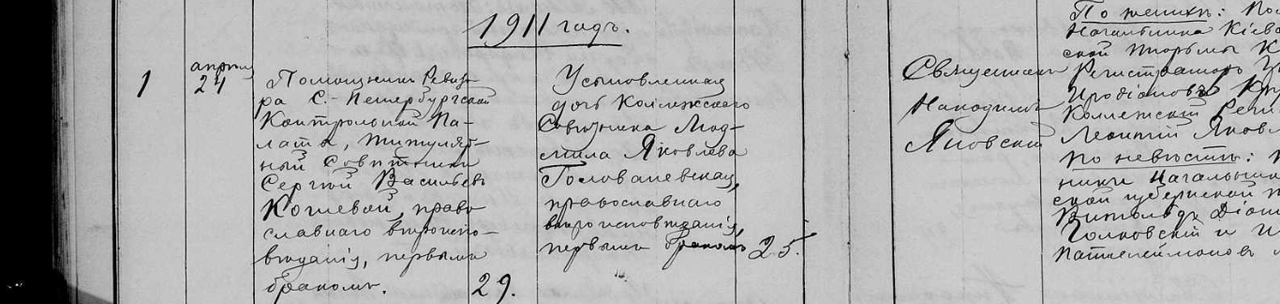 1911 годъ.
1
апрѣля
24
Помощникъ Ревизо-
ра С.-Петербургской
Контрольной Па-
латы, Титуляр-
ный Совѣтникъ
Сергѣй Васильевъ
Кошевой, право
славнаго вѣроиспо-
вѣданія, первымъ
бракомъ.
29.
Усыновленная
дочь Коллежскаго
Совѣтника Люд-
мила Яковлева
Голованевская,
православнаго
вѣроисповѣданія,
первымъ бракомъ
25.
Священникъ
Никодимъ
Яновскій
По женихѣ:
Начальника Кіев
ской тюрьмы
Регистраторъ
Иродіоновъ
Коллежскій
Леонтій
По невѣстѣ:
ники Начальни
ской губернской
Витольдъ
и